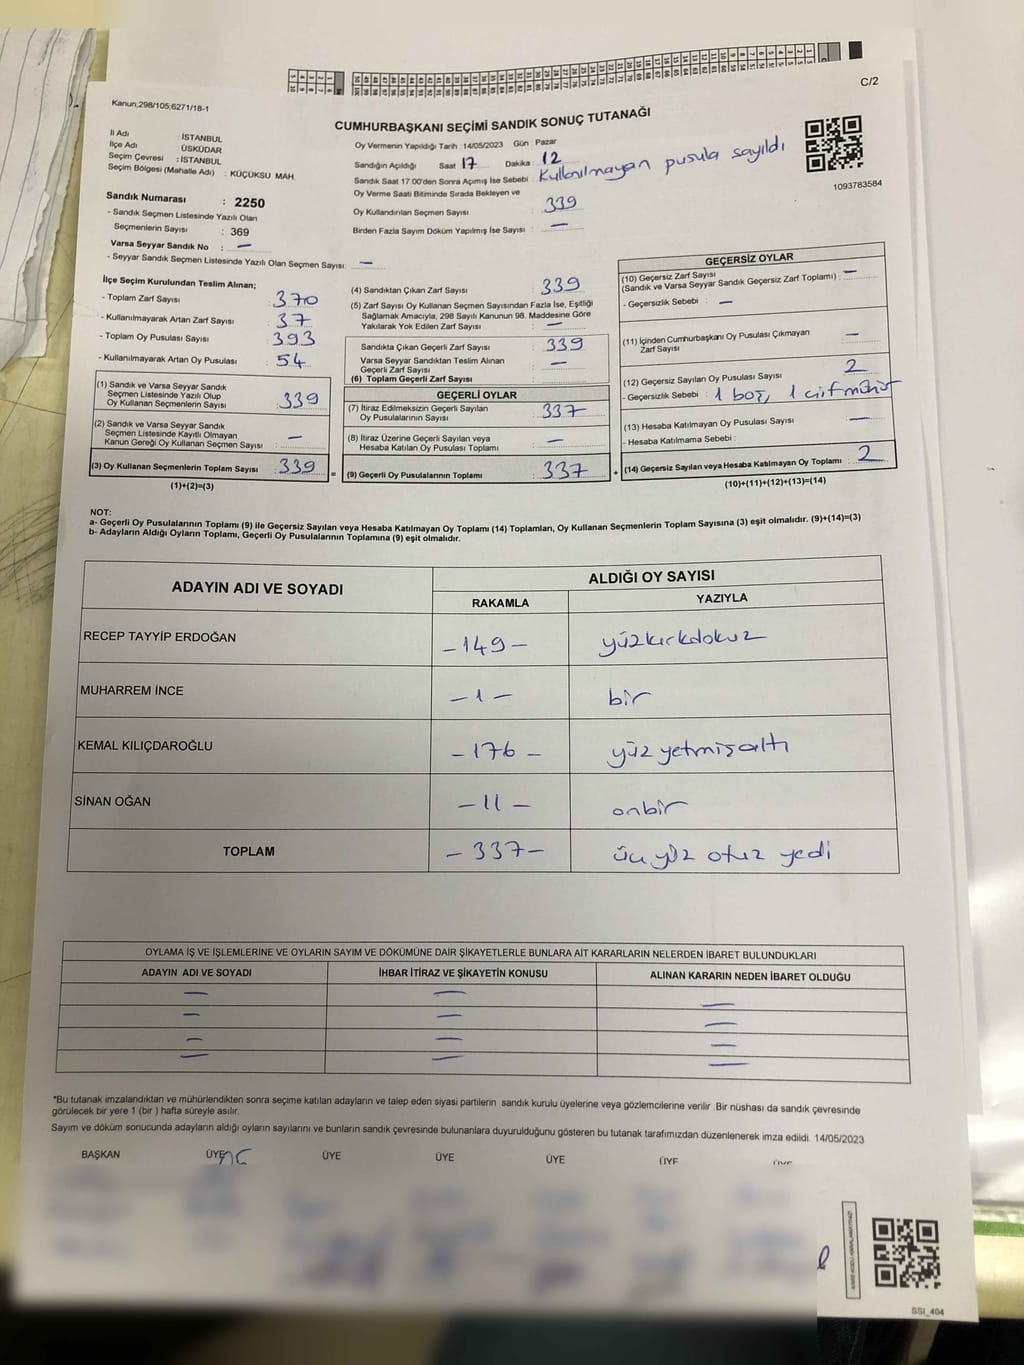 C/2
Kanun;298/105;6271/18-1
CUMHURBAŞKANI SEÇİMİ SANDIK SONUÇ TUTANAĞI
İl Adı : İSTANBUL
İlçe Adı : ÜSKÜDAR
Seçim Çevresi : İSTANBUL
Seçim Bölgesi (Mahalle Adı) : KÜÇÜKSU MAH.
Sandık Numarası : 2250
- Sandık Seçmen Listesinde Yazılı Olan
Seçmenlerin Sayısı : 369
Varsa Seyyar Sandık No : —
- Seyyar Sandık Seçmen Listesinde Yazılı Olan Seçmen Sayısı: —
Oy Vermenin Yapıldığı Tarih : 14/05/2023 Gün : Pazar
Sandığın Açıldığı Saat 17 Dakika : 12
Sandık Saat 17:00'den Sonra Açımış İse Sebebi : Kullanılmayan pusula sayıldı
Oy Verme Saati Bitiminde Sırada Bekleyen ve
Oy Kullandırılan Seçmen Sayısı : 339
Birden Fazla Sayım Döküm Yapılmış İse Sayısı : —
1093783584
İlçe Seçim Kurulundan Teslim Alınan;
- Toplam Zarf Sayısı : 370
- Kullanılmayarak Artan Zarf Sayısı : 37
- Toplam Oy Pusulası Sayısı : 393
- Kullanılmayarak Artan Oy Pusulası : 54
(1) Sandık ve Varsa Seyyar Sandık
Seçmen Listesinde Yazılı Olup
Oy Kullanan Seçmenlerin Sayısı : 339
(2) Sandık ve Varsa Seyyar Sandık
Seçmen Listesinde Kayıtlı Olmayan
Kanun Gereği Oy Kullanan Seçmen Sayısı : —
(3) Oy Kullanan Seçmenlerin Toplam Sayısı : 339
(1)+(2)=(3)
(4) Sandıktan Çıkan Zarf Sayısı : 339
(5) Zarf Sayısı Oy Kullanan Seçmen Sayısından Fazla İse, Eşitliği
Sağlamak Amacıyla, 298 Sayılı Kanunun 98. Maddesine Göre
Yakılarak Yok Edilen Zarf Sayısı : —
Sandıkta Çıkan Geçerli Zarf Sayısı : 339
Varsa Seyyar Sandıktan Teslim Alınan
Geçerli Zarf Sayısı : —
(6) Toplam Geçerli Zarf Sayısı :
GEÇERLİ OYLAR
(7) İtiraz Edilmeksizin Geçerli Sayılan
Oy Pusulalarının Sayısı : 337
(8) İtiraz Üzerine Geçerli Sayılan veya
Hesaba Katılan Oy Pusulası Toplamı : —
= (9) Geçerli Oy Pusulalarının Toplamı : 337
GEÇERSİZ OYLAR
(10) Geçersiz Zarf Sayısı
(Sandık ve Varsa Seyyar Sandık Geçersiz Zarf Toplamı) : —
- Geçersizlik Sebebi : —
(11) İçinden Cumhurbaşkanı Oy Pusulası Çıkmayan
Zarf Sayısı : —
(12) Geçersiz Sayılan Oy Pusulası Sayısı : 2
- Geçersizlik Sebebi : 1 boş, 1 çift mühür
(13) Hesaba Katılmayan Oy Pusulası Sayısı : —
- Hesaba Katılmama Sebebi :
+ (14) Geçersiz Sayılan veya Hesaba Katılmayan Oy Toplamı : 2
(10)+(11)+(12)+(13)=(14)
NOT:
a- Geçerli Oy Pusulalarının Toplamı (9) ile Geçersiz Sayılan veya Hesaba Katılmayan Oy Toplamı (14) Toplamları, Oy Kullanan Seçmenlerin Toplam Sayısına (3) eşit olmalıdır. (9)+(14)=(3)
b- Adayların Aldığı Oyların Toplamı, Geçerli Oy Pusulalarının Toplamına (9) eşit olmalıdır.
ADAYIN ADI VE SOYADI ALDIĞI OY SAYISI
RAKAMLA YAZIYLA
RECEP TAYYİP ERDOĞAN -149- yüzkırkdokuz
MUHARREM İNCE -1- bir
KEMAL KILIÇDAROĞLU -176- yüz yetmişaltı
SİNAN OĞAN -11- onbir
TOPLAM -337- üç yüz otuz yedi
OYLAMA İŞ VE İŞLEMLERİNE VE OYLARIN SAYIM VE DÖKÜMÜNE DAİR ŞİKAYETLERLE BUNLARA AİT KARARLARIN NELERDEN İBARET BULUNDUKLARI
ADAYIN ADI VE SOYADI İHBAR İTİRAZ VE ŞİKAYETİN KONUSU ALINAN KARARIN NEDEN İBARET OLDUĞU
— — —
— — —
— — —
— — —
*Bu tutanak imzalandıktan ve mühürlendikten sonra seçime katılan adayların ve talep eden siyasi partilerin sandık kurulu üyelerine veya gözlemcilerine verilir .Bir nüshası da sandık çevresinde
görülecek bir yere 1 (bir ) hafta süreyle asılır.
Sayım ve döküm sonucunda adayların aldığı oyların sayılarını ve bunların sandık çevresinde bulunanlara duyurulduğunu gösteren bu tutanak tarafımızdan düzenlenerek imza edildi. 14/05/2023
BAŞKAN ÜYE ÜYE ÜYE ÜYE ÜYE ÜYE
SSI_404